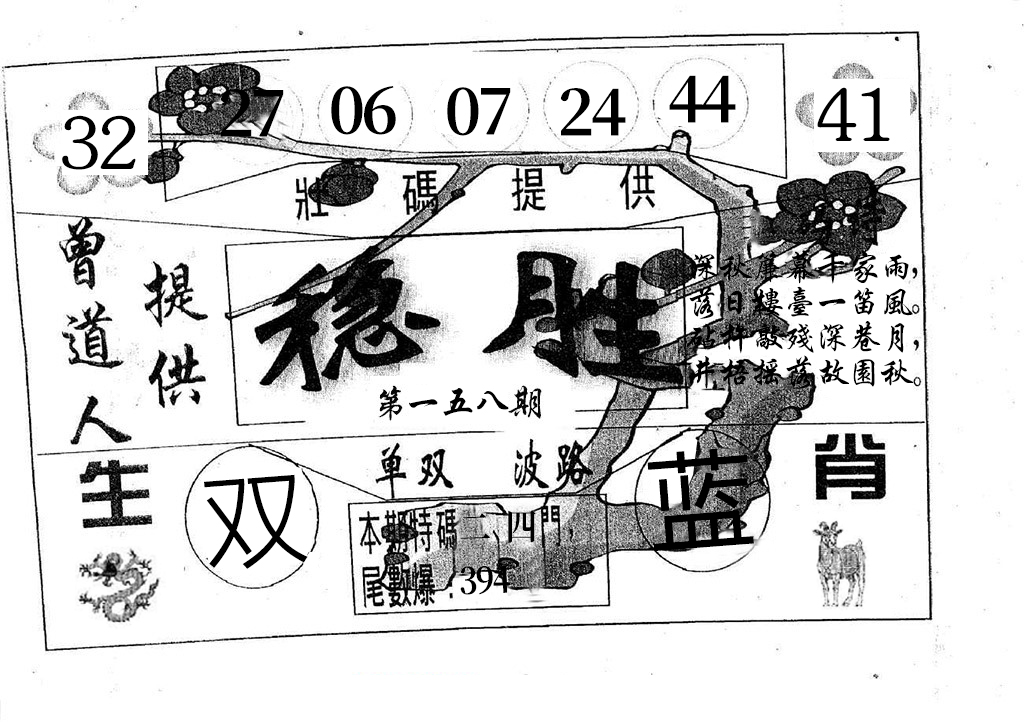 32 27 06 07 24 44 41
壯碼提供
曾道人
提供
稳胜
第一五八期
詩
深秋簾幕千家雨，
落日樓臺一笛風。
砧杵敲殘深巷月，
井梧摇落故園秋。
生
肖
单双 波路
双
蓝
本期特碼二、四門，
尾數爆：394